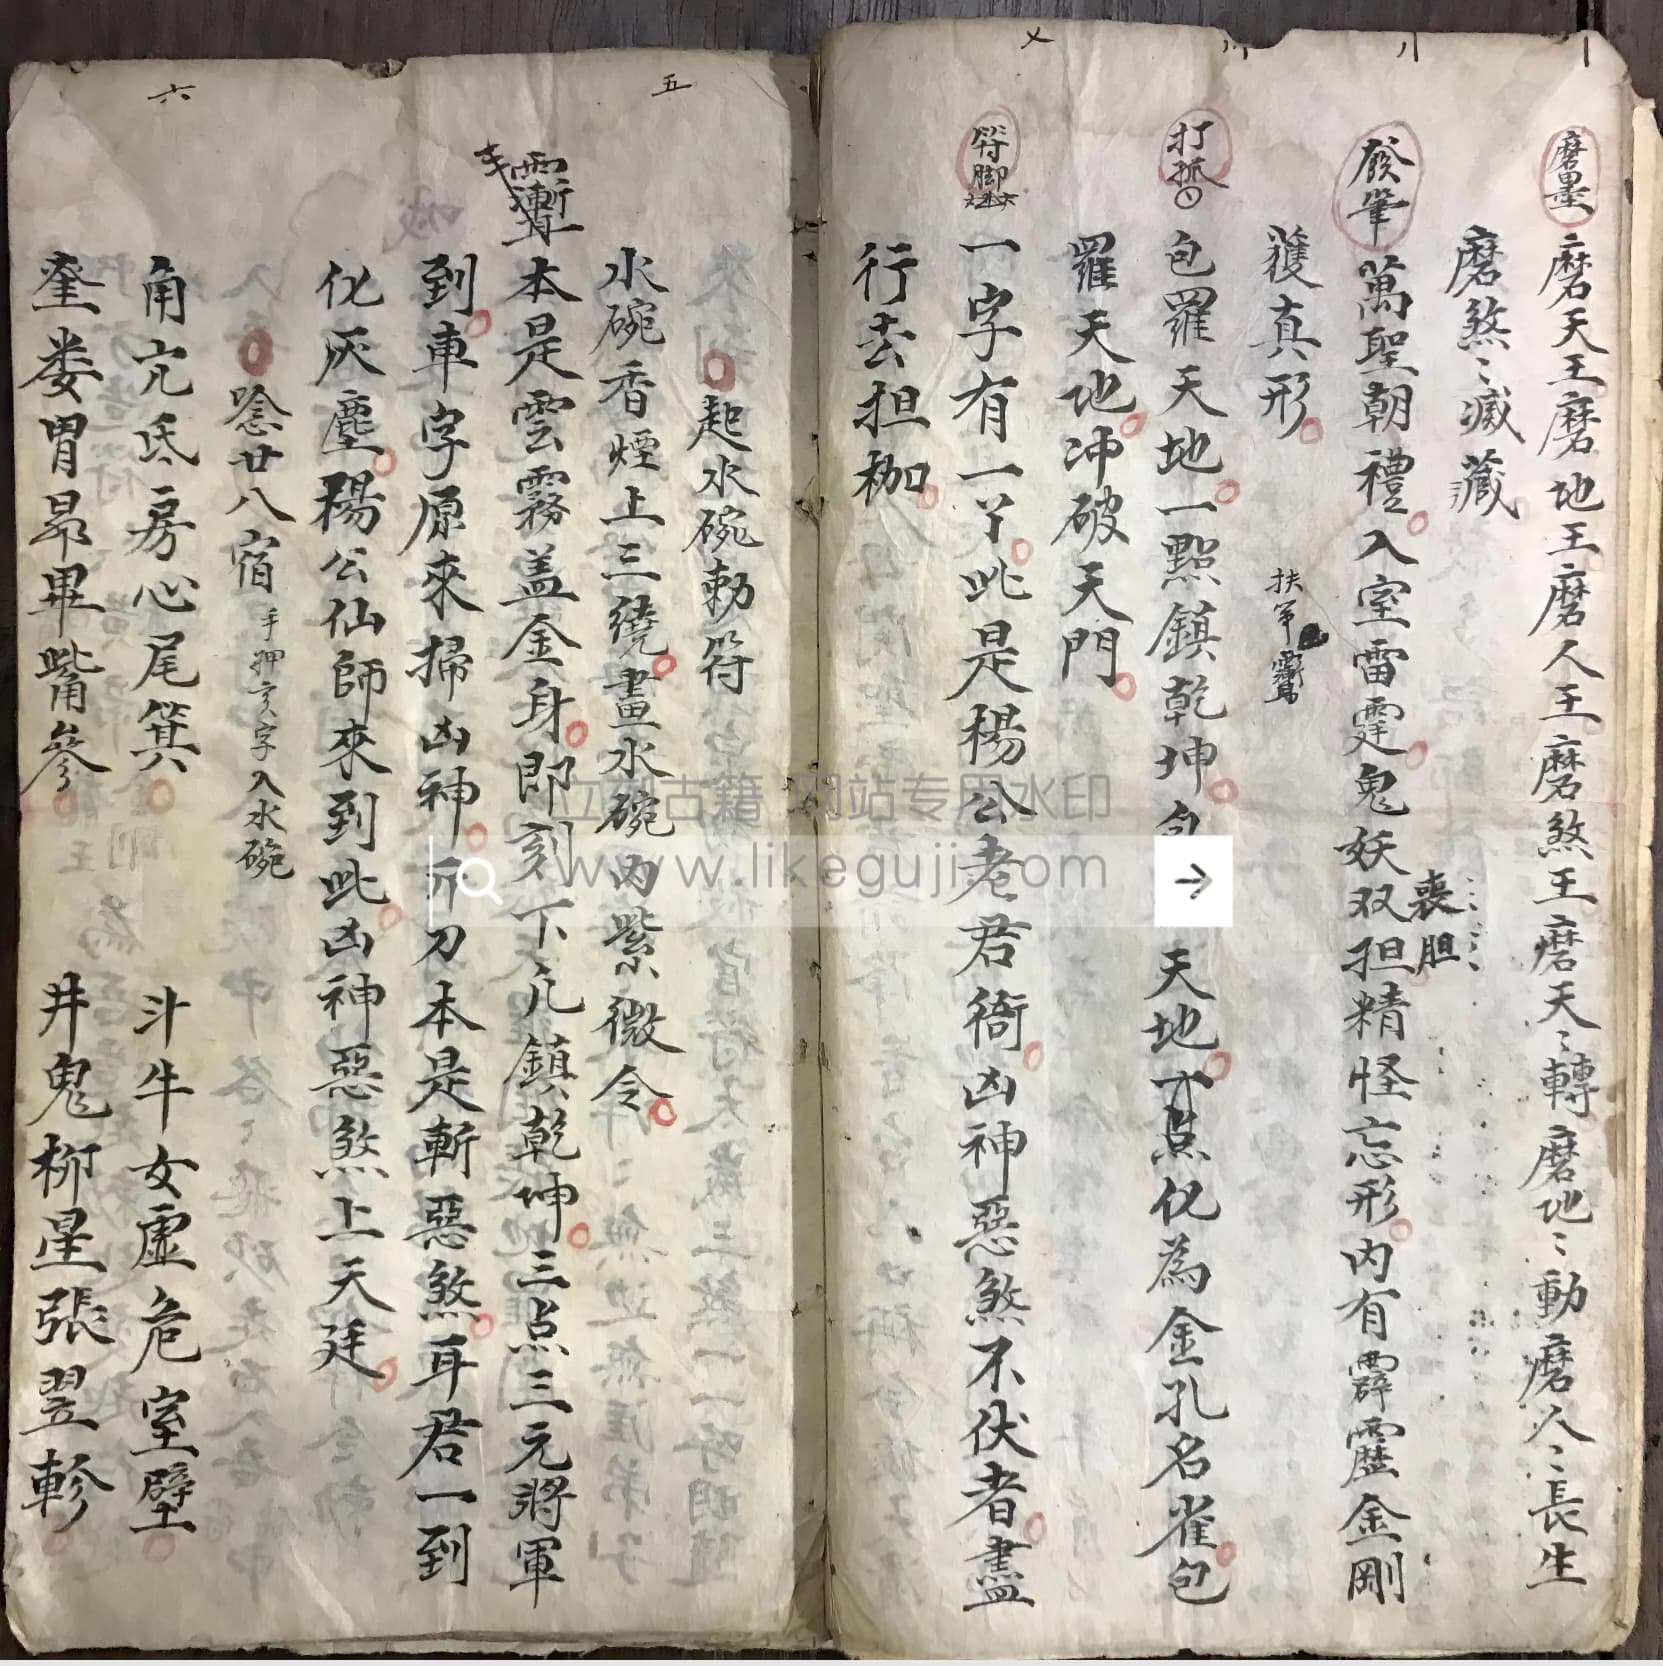 磨墨
磨天王磨地王磨人王磨煞王磨天〻轉磨地〻動磨人〻長生
磨煞〻滅藏
發筆
萬聖朝禮入室雷霆鬼妖双担精怪忘形内有霹靂金剛
喪胆
獲真形
扶軍
打抓
包羅天地一點鎮乾坤 天地 点化為金孔名雀包
羅天地冲破天門
符脚
一字有一丫此是楊公老君衙凶神惡煞不伏者盡
行去担枷
五
起水碗勅符
水碗香煙上三繞畫水碗内紫微令
本是雲霧盖金身即刻下凡鎮乾坤三点三元將軍
到車字原來掃凶神斤刀本是斬惡煞耳君一到
化灰塵楊公仙師來到此凶神惡煞上天廷
唸廿八宿 手押亥字入水碗
六
角亢氐房心尾箕 斗牛女虛危室壁
奎娄胃昴畢觜參 井鬼柳星張翌軫
立刻古籍 网站专用水印
www.likeguji.com